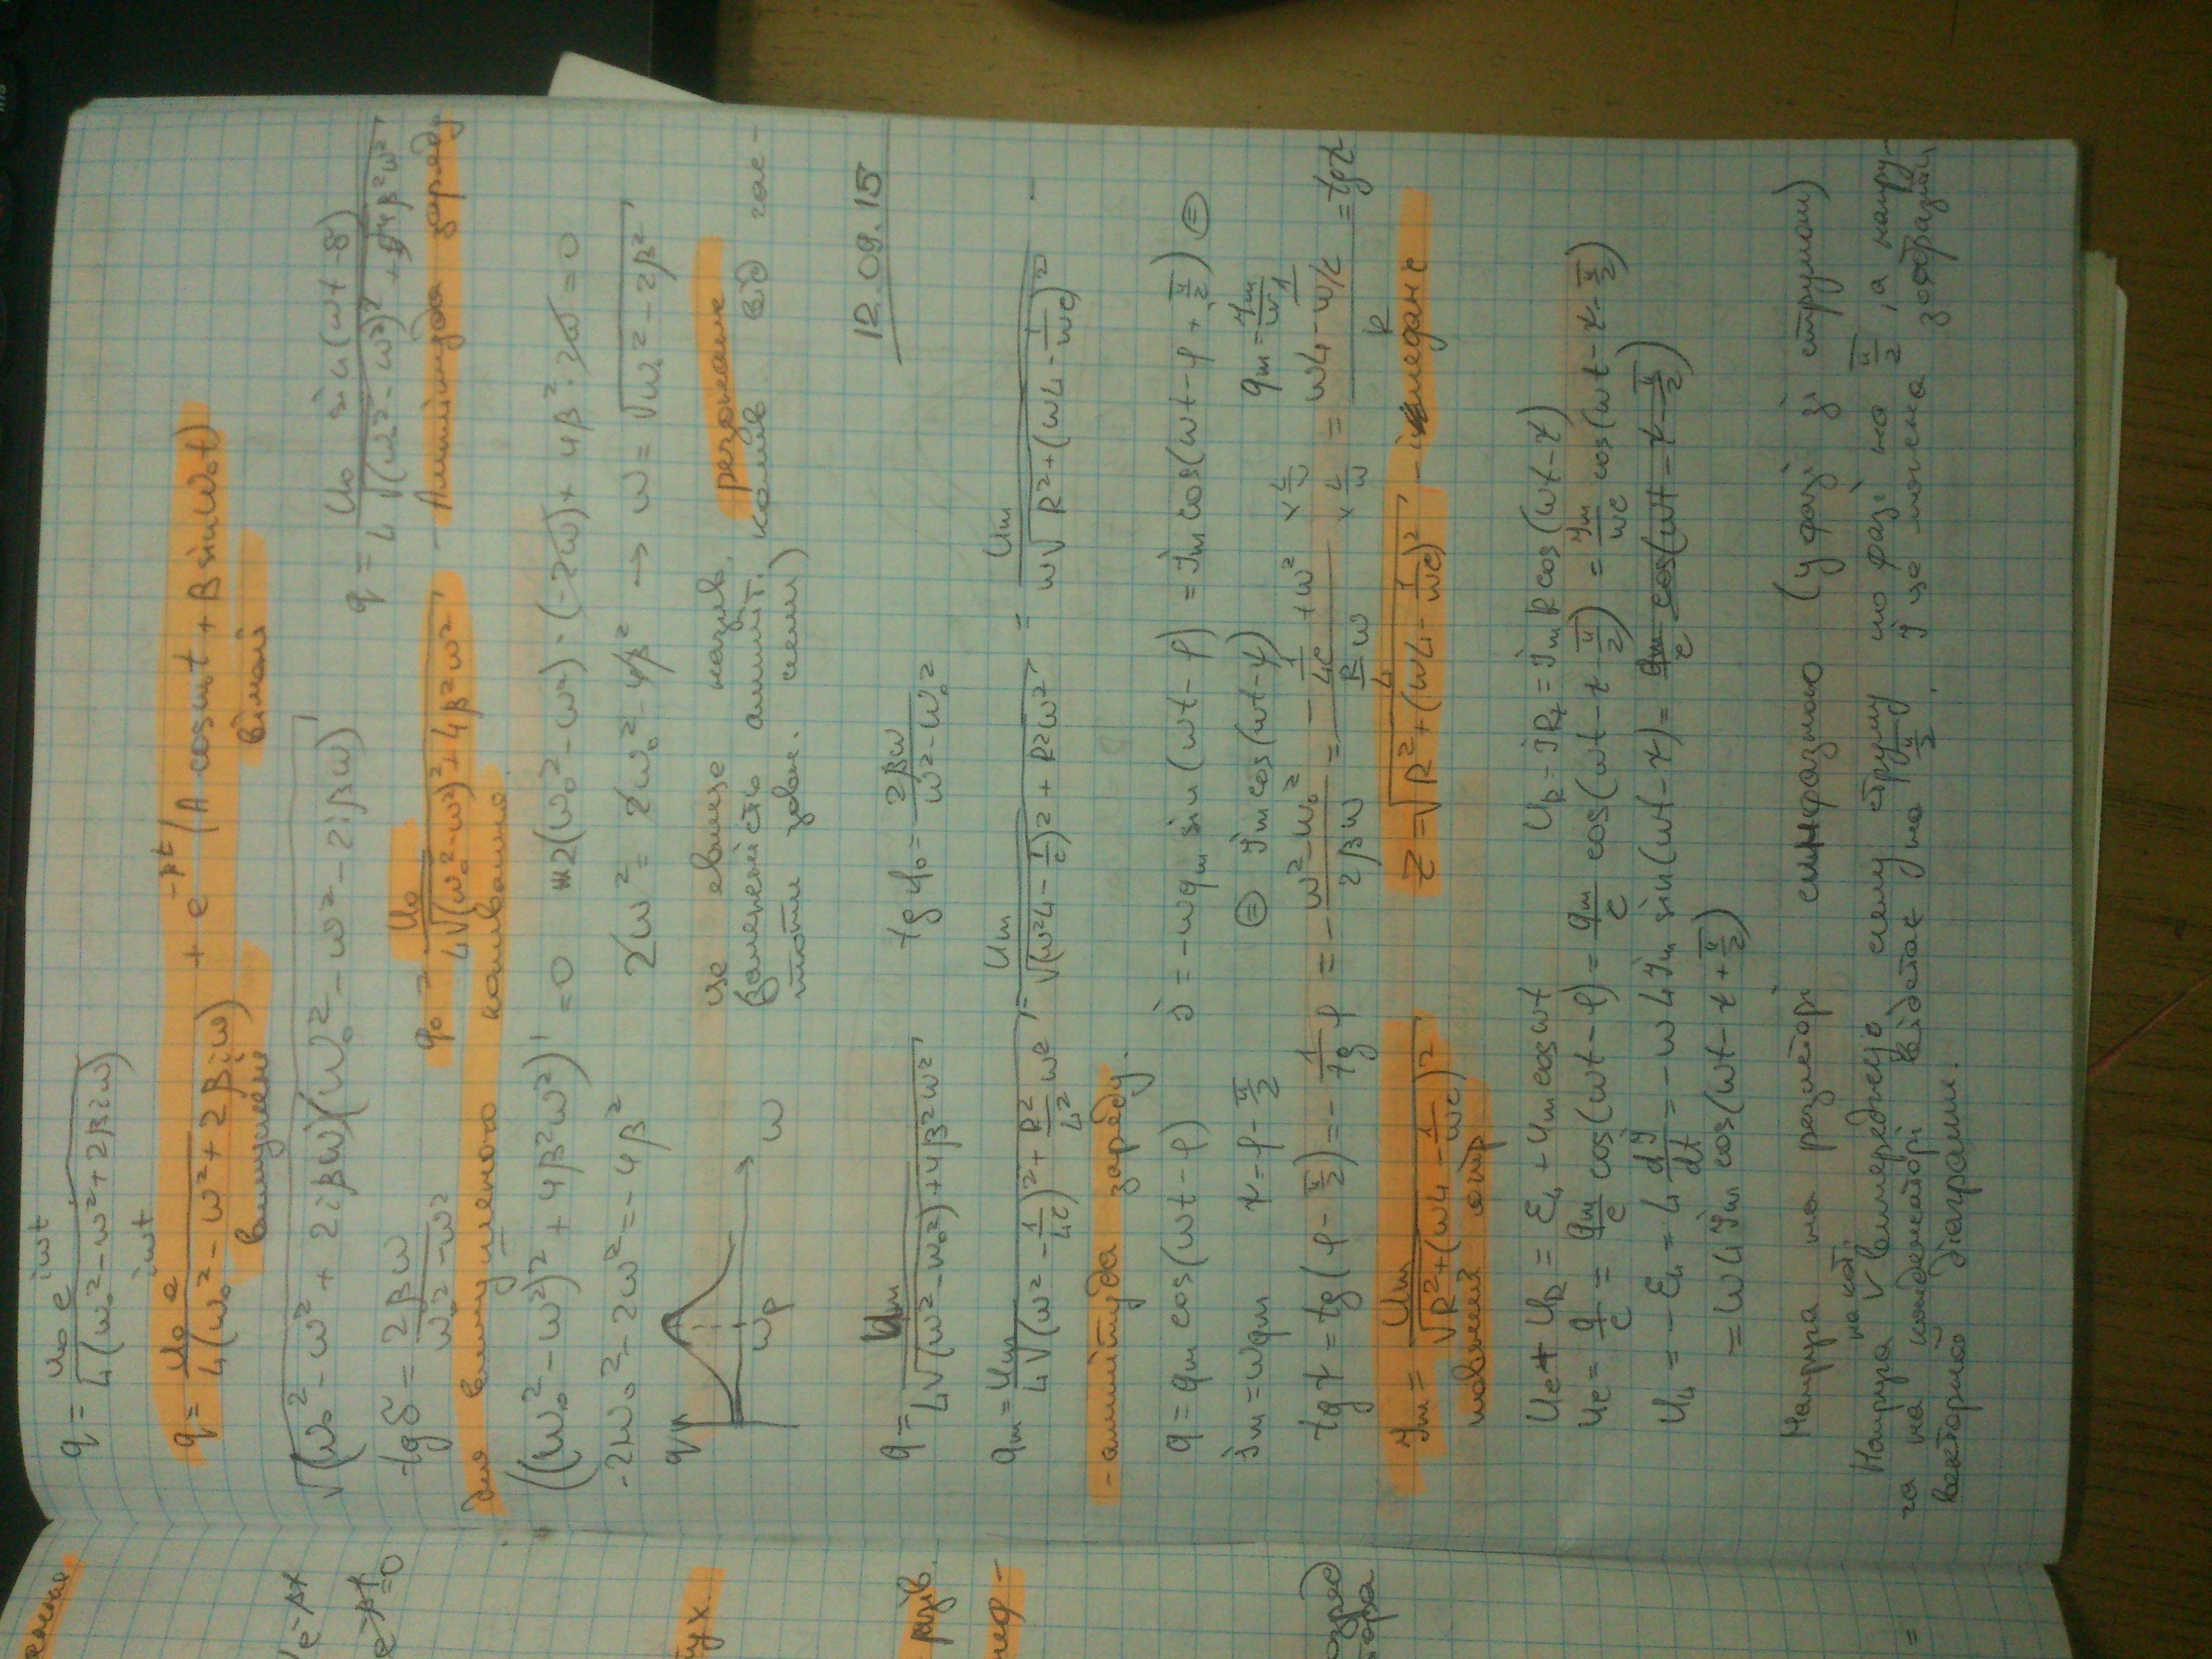 q = U₀ e^{iωt} / L(ω₀² − ω² + 2βiω)
q = U₀ e^{iωt} / L(ω₀² − ω² + 2βiω) + e^{−βt}(A cosω₀t + B sinω₀t)
вимушені вільні
√(ω₀² − ω² + 2iβω)(ω₀² − ω² − 2iβω)
q = U₀ sin(ωt − δ) / L√((ω₀² − ω²)² + 4β²ω²)
tgδ = 2βω / ω₀² − ω²
q₀ = U₀ / L√((ω₀² − ω²)² + 4β²ω²) – Амплітуда заряду
для вимушеного коливання.
((ω₀² − ω²)² + 4β²ω²)' = 0 2(ω₀² − ω²)·(−2ω) + 4β²·2ω = 0
−2ω₀² − 2ω² = −4β² 2ω² = 2ω₀² − 4β² → ω = √ω₀² − 2β²
q
ωр ω
це явище назив. резонанс
(залежність ампліт. колив. від час-
тоти зовн. сили)
12.09.15
q = Um / L√(ω² − ω₀²) + 4β²ω² tgφ₀ = 2βω / ω² − ω₀²
qm = Um / L√(ω² − 1/LC)² + R²/L² ω² = Um / √(ω²L − 1/C)² + R²ω² = Um / ω√R² + (ωL − 1/ωC)² –
– амплітуда заряду.
q = qm cos(ωt − φ) I = −ωqm sin(ωt − φ) = Im cos(ωt − φ + π/2) ⊜
Im = ωqm χ = φ − π/2 ⊜ Im cos(ωt − χ) qm = Im/ω
tgχ = tg(φ − π/2) = − 1/tgφ = − ω² − ω₀² / 2βω = − 1/LC + ω² / R/L ω × L/ω × L/ω = ωL − 1/ωC / R = tgχ
Im = Um / √R² + (ωL − 1/ωC)² Z = √R² + (ωL − 1/ωC)² – імпеданс
повний опір
Uc + UR = εL + Um cosωt UR = IR = Im R cos(ωt − χ)
Uc = q/C = qm/C cos(ωt − φ) = qm/C cos(ωt − χ − π/2) = Im/ωC cos(ωt − χ − π/2)
UL = −εL = L dI/dt = −ωL Im sin(ωt − χ) = qm/C cos(ωt − χ − π/2)
= ωL Im cos(ωt − χ + π/2)
Напруга на резисторі синфазною (у фазі зі струмом)
на кот.
Напруга V випереджує силу струму по фазі на π/2, а напру-
га на конденсаторі відстає на π/2. І це можна зобразити
векторної діаграми.
e^{−βt}
e^{−βt} = 0
тух.
разів.